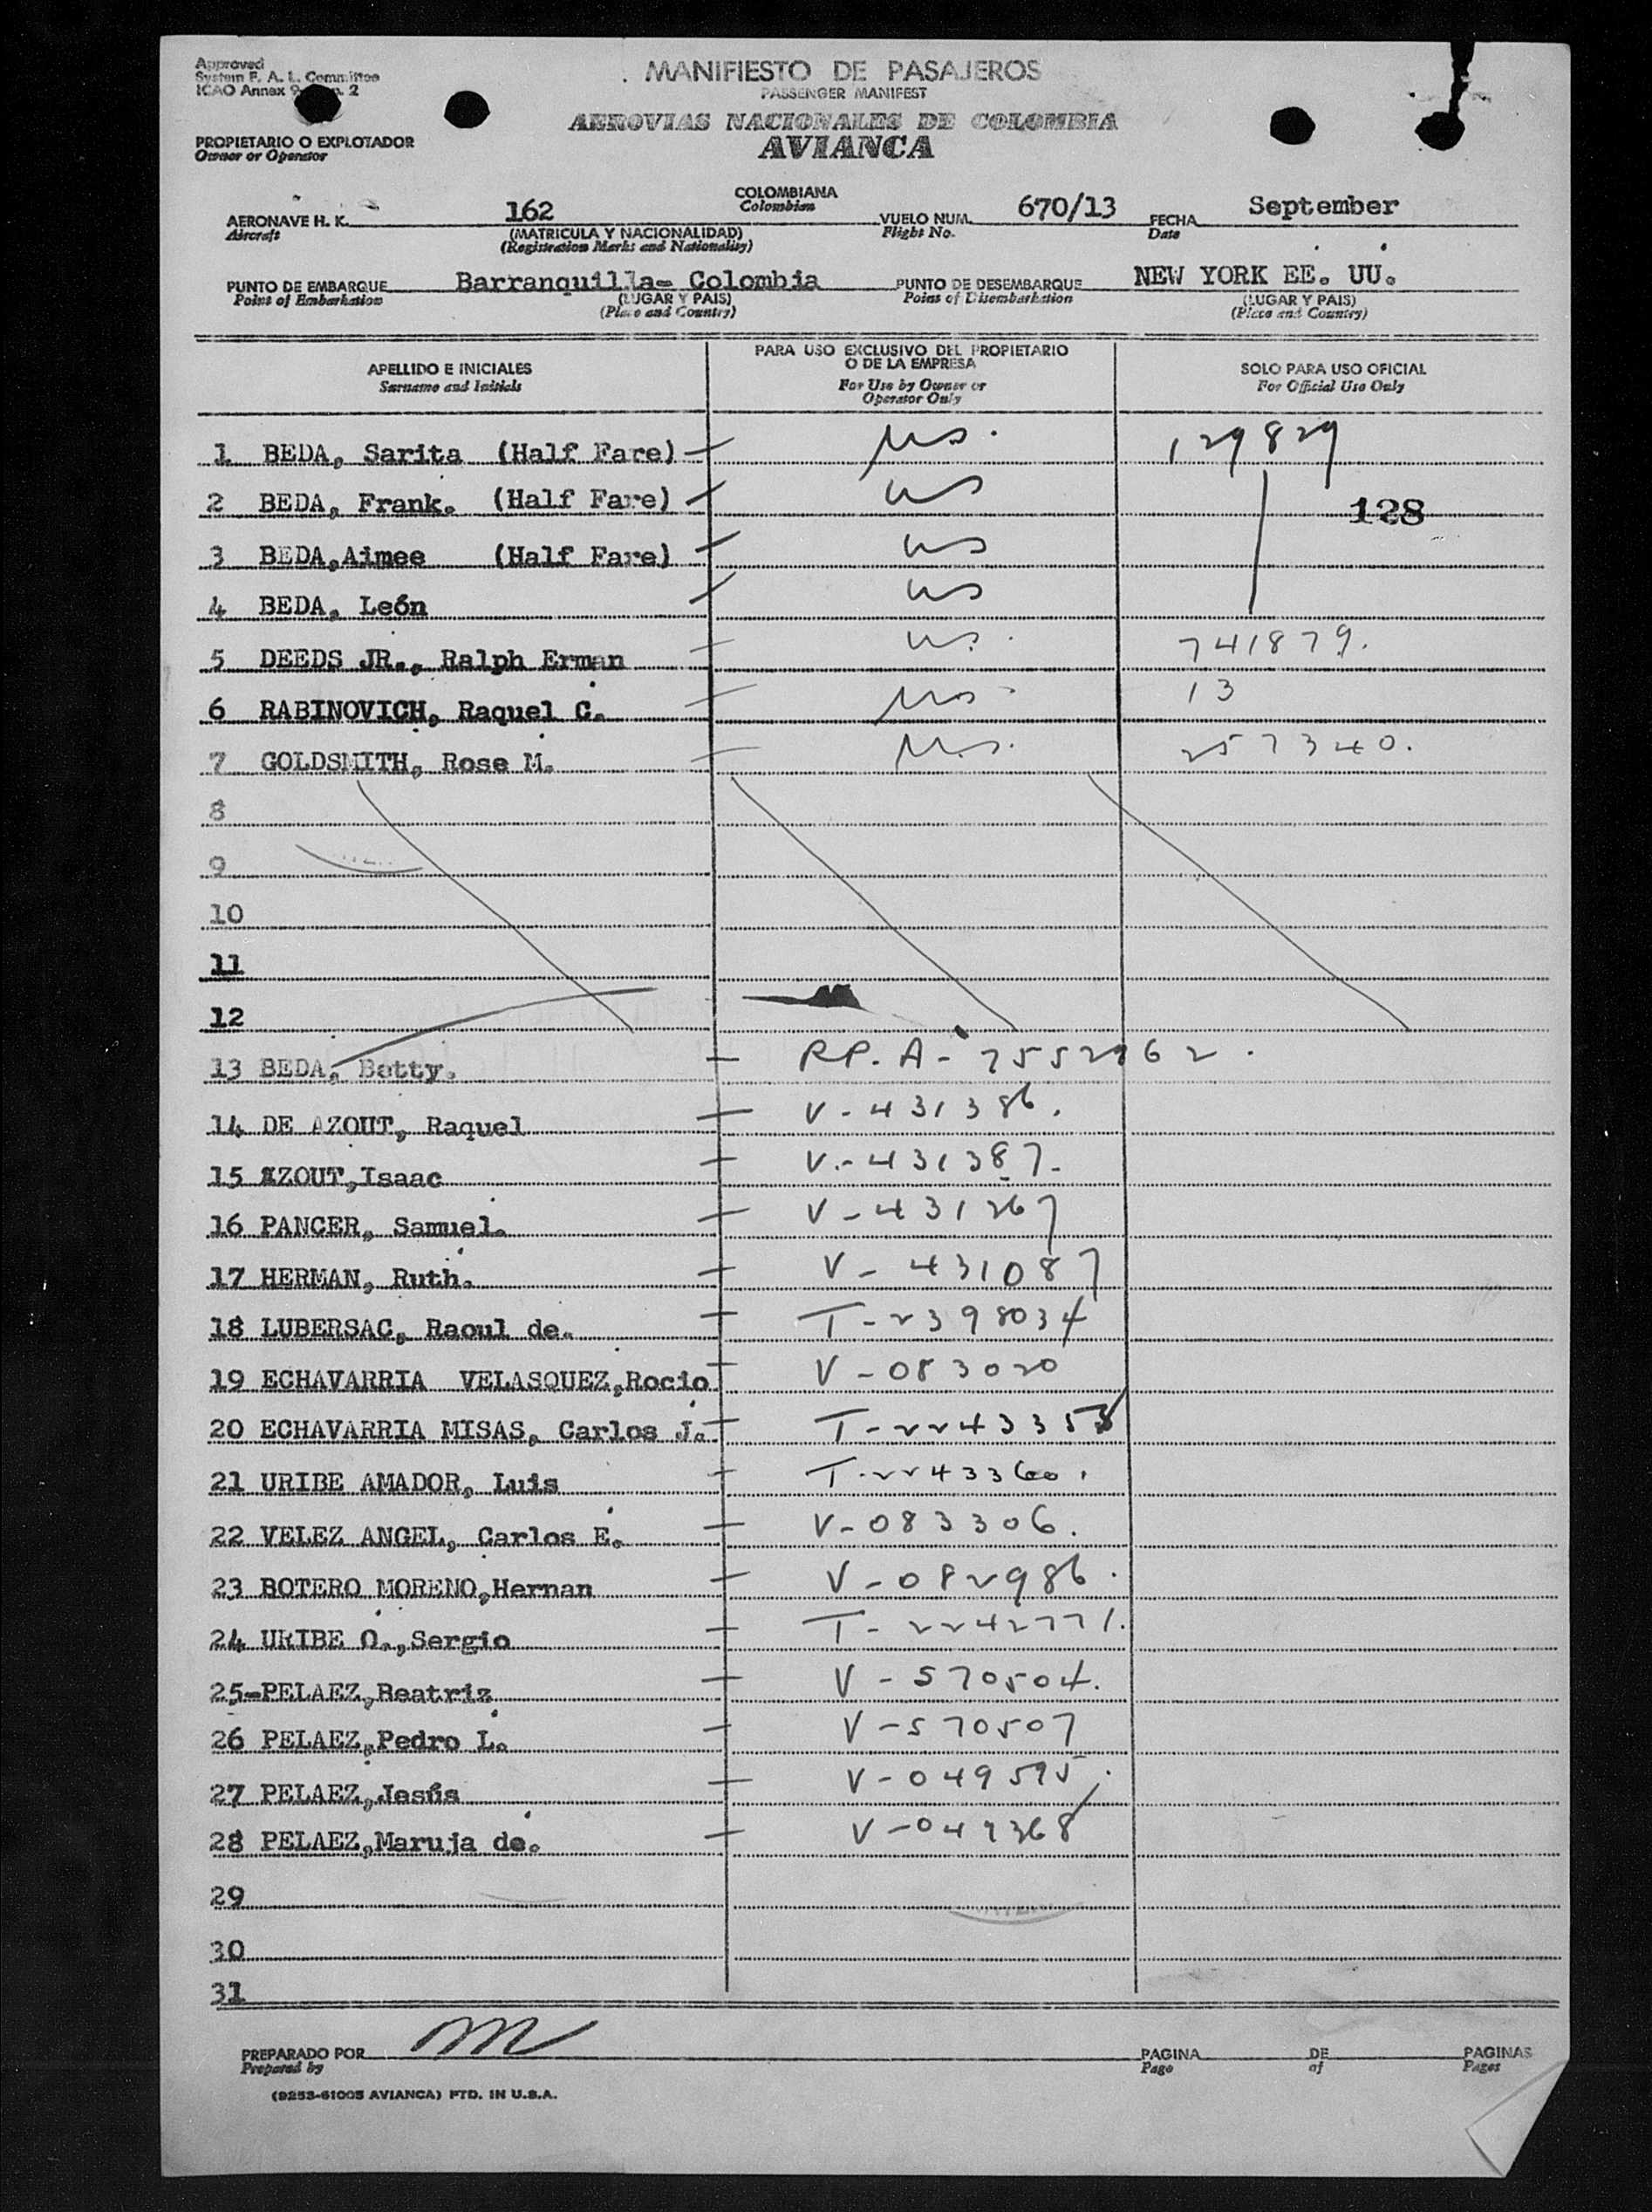 Approved
System F. A. L. Committee
ICAO Annex 9 2
MANIFIESTO DE PASAJEROS
PASSENGER MANIFEST
AEROVIAS NACIONALES DE COLOMBIA
AVIANCA
PROPIETARIO O EXPLOTADOR
Owner or Operator
AERONAVE H. K. 162 COLOMBIANA VUELO NUM. 670/13 FECHA September
Aircraft Colombian Flight No. Date
(MATRICULA Y NACIONALIDAD)
(Registration Marks and Nationality)
PUNTO DE EMBARQUE Barranquilla- Colombia PUNTO DE DESEMBARQUE NEW YORK EE. UU.
Point of Embarkation (LUGAR Y PAIS) Point of Disembarkation (LUGAR Y PAIS)
(Place and Country) (Place and Country)
APELLIDO E INICIALES PARA USO EXCLUSIVO DEL PROPIETARIO O DE LA EMPRESA SOLO PARA USO OFICIAL
Surname and Initials For Use by Owner or Operator Only For Official Use Only
1 BEDA, Sarita (Half Fare) us. 129829
2 BEDA, Frank. (Half Fare) us 128
3 BEDA,Aimee (Half Fare) us
4 BEDA, León us
5 DEEDS JR., Ralph Erman us. 741879.
6 RABINOVICH, Raquel C. us. 13
7 GOLDSMITH, Rose M. us. 257340.
8
9
10
11
12
13 BEDA, Betty. RP. A- 7552962.
14 DE AZOUT, Raquel V-431386.
15 AZOUT,Isaac V.-431387-
16 PANCER, Samuel. V-431267
17 HERMAN, Ruth. V-431087
18 LUBERSAC, Raoul de. T-2398034
19 ECHAVARRIA VELASQUEZ,Rocio V-083020
20 ECHAVARRIA MISAS, Carlos J.
21 URIBE AMADOR, Luis T-2243360.
22 VELEZ ANGEL, Carlos E. V-083306.
23 BOTERO MORENO,Hernan V-082986.
24 URIBE O.,Sergio T-2242771.
25-PELAEZ,Beatriz V-570504.
26 PELAEZ,Pedro L. V-570507
27 PELAEZ,Jesús V-049595.
28 PELAEZ,Maruja de. V-049368
29
30
31
PREPARADO POR PAGINA DE PAGINAS
Prepared by Page of Pages
(9253-61005 AVIANCA) PTD. IN U.S.A.